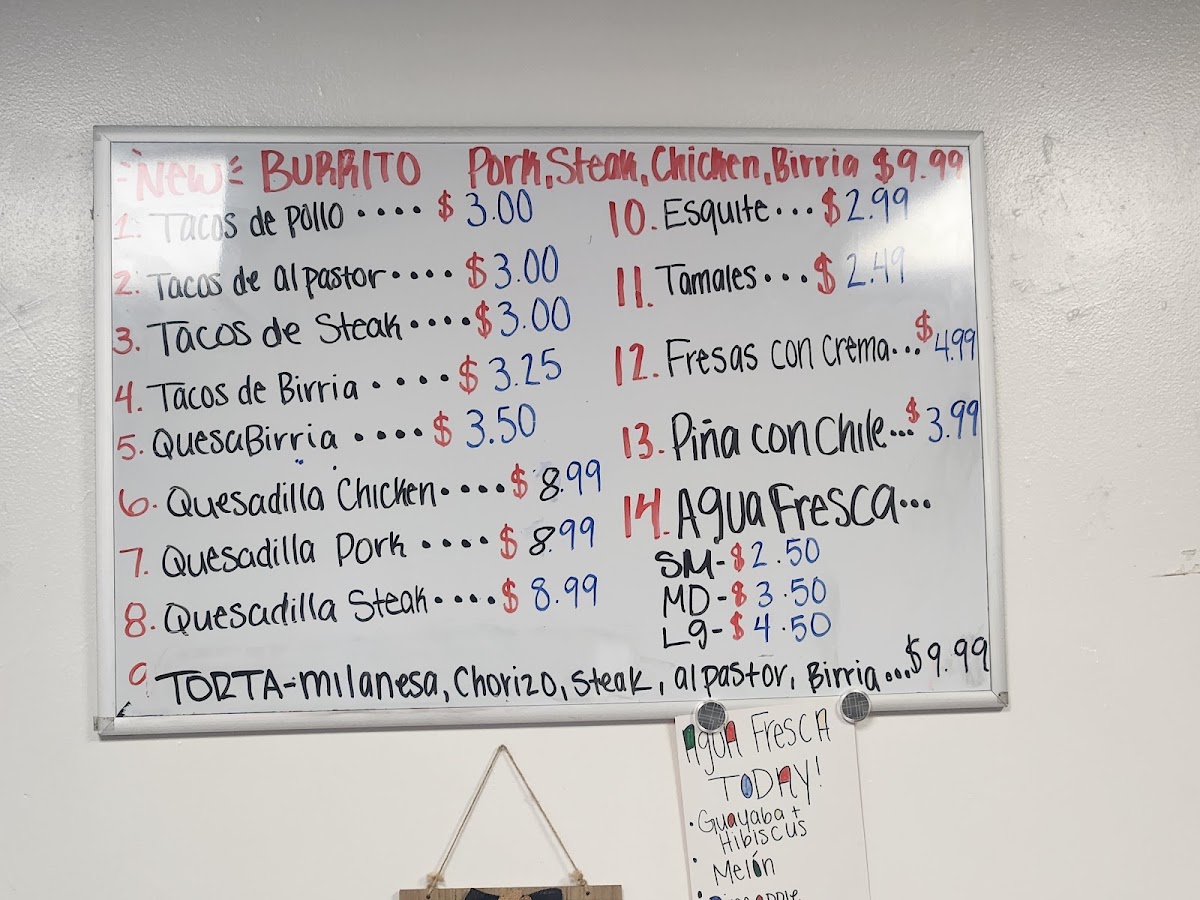 New BURRITO Pork, Steak, Chicken, Birria $9.99
1. Tacos de pollo .... $3.00
2. Tacos de al pastor .... $3.00
3. Tacos de Steak .... $3.00
4. Tacos de Birria .... $3.25
5. QuesaBirria .... $3.50
6. Quesadilla Chicken .... $8.99
7. Quesadilla Pork .... $8.99
8. Quesadilla Steak .... $8.99
9 TORTA-milanesa, Chorizo, Steak, al pastor, Birria ... $9.99
10. Esquite ... $2.99
11. Tamales ... $2.49
12. Fresas con crema ... $4.99
13. Piña con Chile ... $3.99
14. Agua Fresca ...
SM-$2.50
MD-$3.50
Lg-$4.50
AguA FrescA
TODAY!
• Guayaba +
Hibiscus
• Melón
• Pineapple